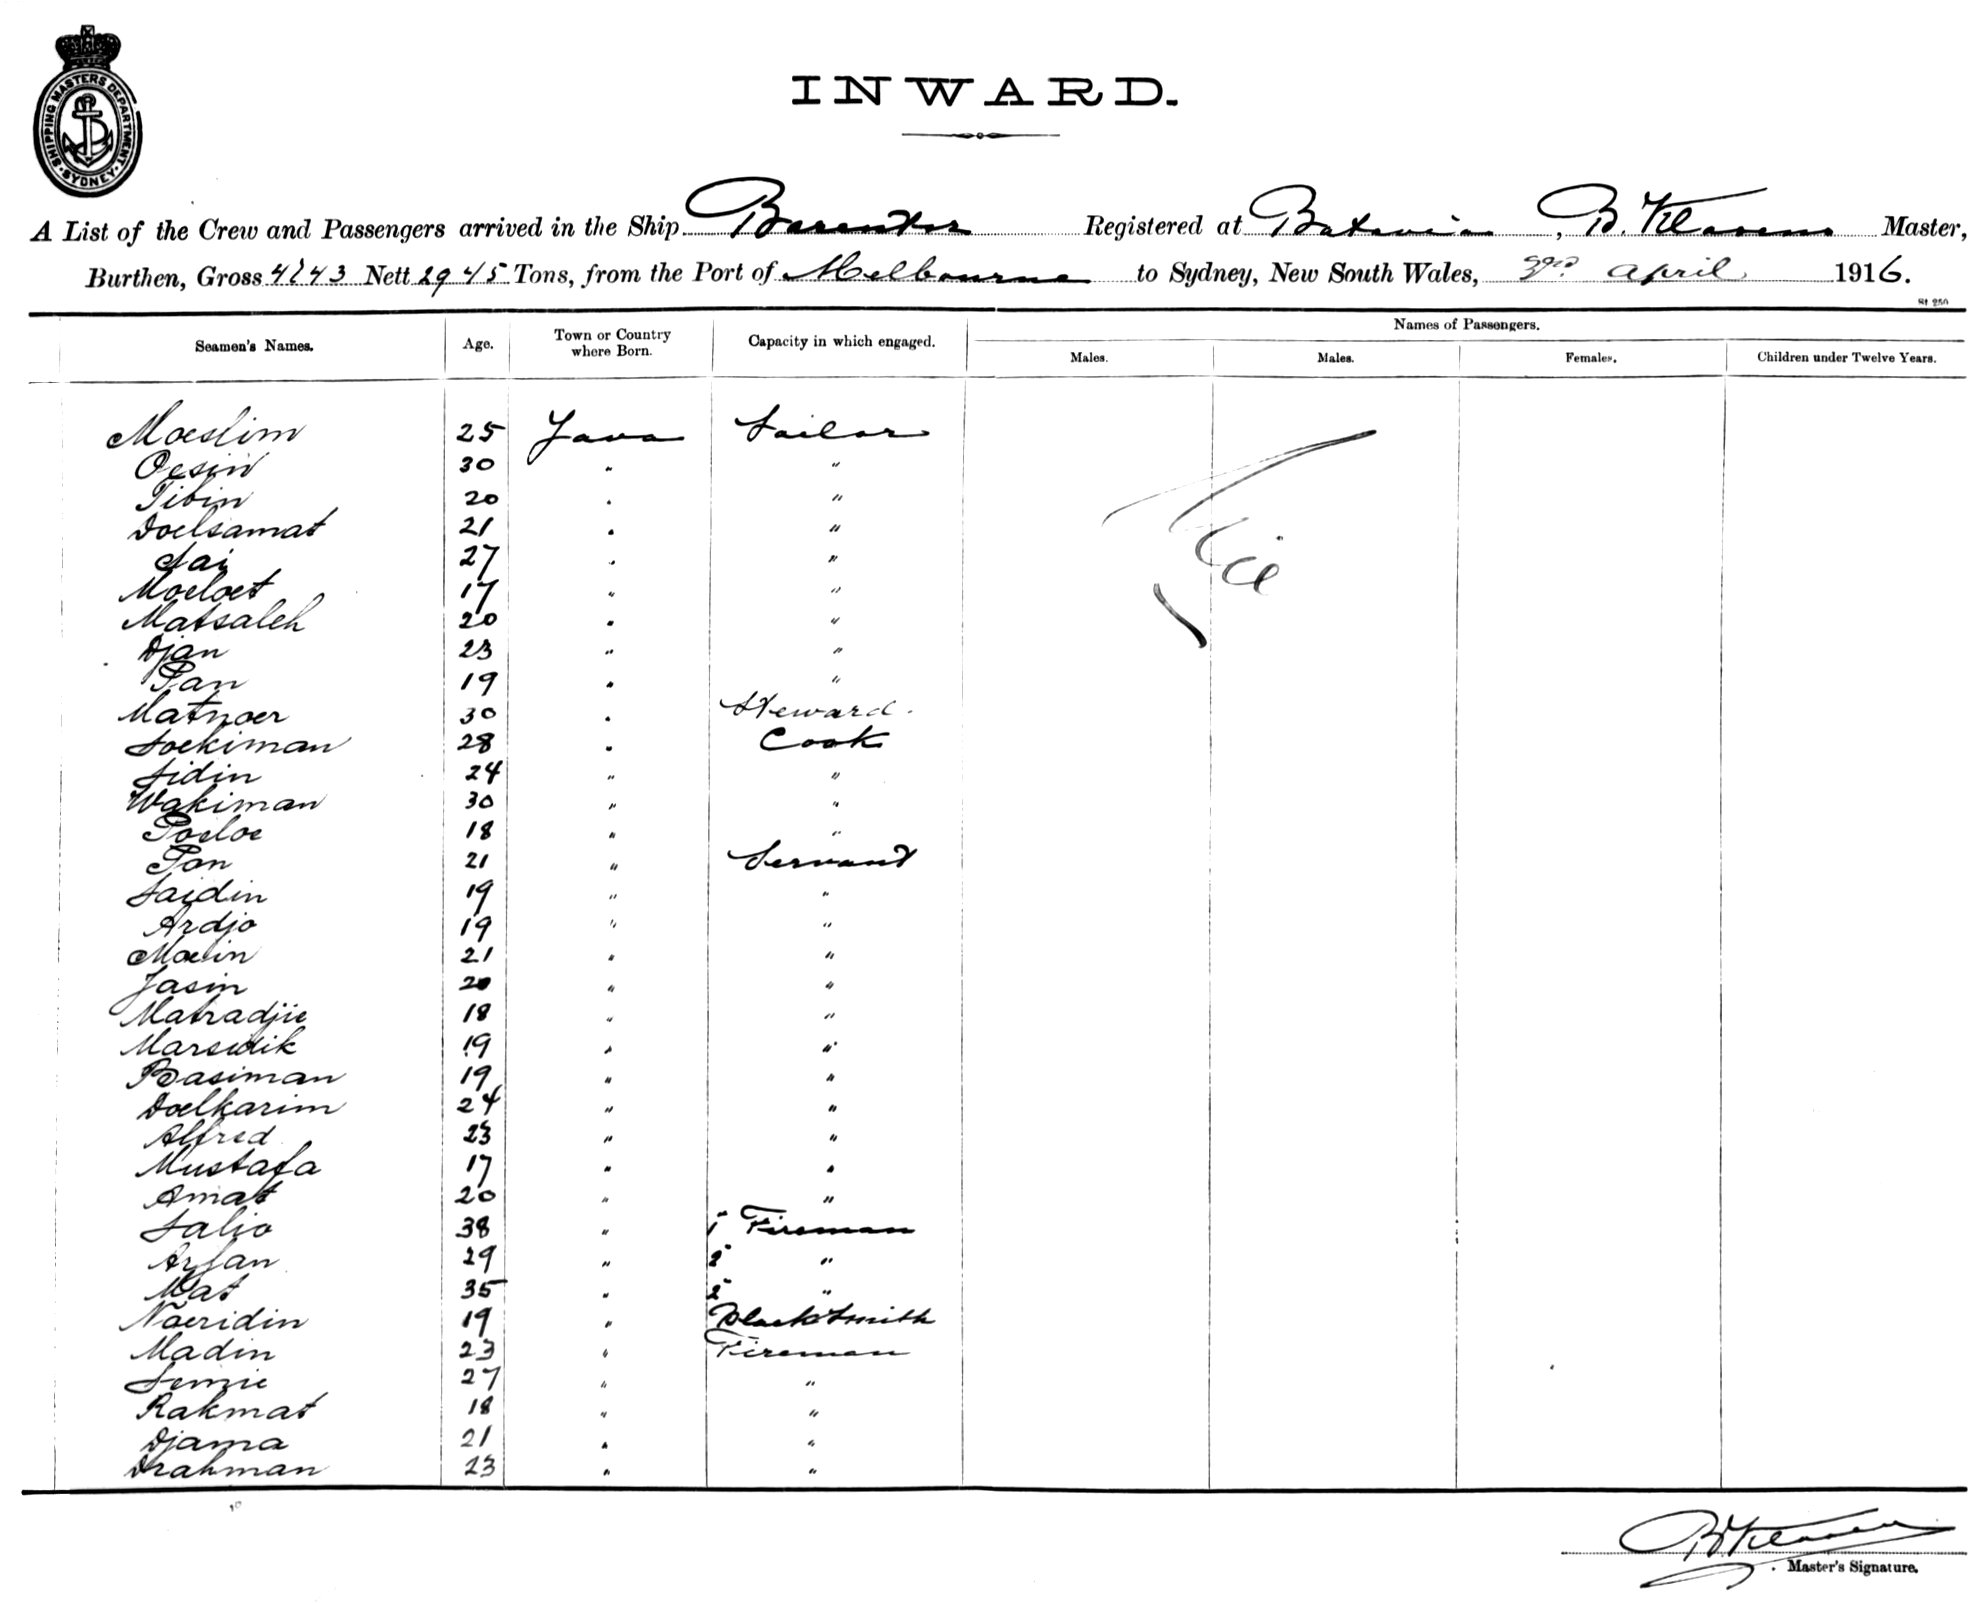 SHIPPING MASTERS DEPARTMENT · SYDNEY ·
INWARD.
A List of the Crew and Passengers arrived in the Ship Registered at Batavia, B. Master,
Burthen, Gross Nett 2945 Tons, from the Port of Melbourne to Sydney, New South Wales, 3rd April 1916.
St 250
Seamen's Names. Age. Town or Country where Born. Capacity in which engaged. Names of Passengers.
Males. Males. Females. Children under Twelve Years.
Moeslim 25 Java Sailor
Oesin 30 " "
Tibin 20 " "
Doelsamat 21 " "
Sai 27 " "
Moeloet 17 " "
Matsaleh 20 " "
Djan 23 " "
Pan 19 " "
Matnoer 30 " Steward.
Soekiman 28 " Cook
Sidin 24 " "
Wakiman 30 " "
Poeloe 18 " "
21 " Servant
Saidin 19 " "
Ardjo 19 " "
Moein 21 " "
Jasin 20 " "
Matradjie 18 " "
Marsidik 19 " "
Basiman 19 " "
Doelkarim 24 " "
Alfred 23 " "
Mustafa 17 " "
Amat 20 " "
Salio 38 " 1" Fireman
Arfan 29 " 2" "
Mat 35 " 2" "
Noeridin 19 " Blacksmith
Madin 23 " Fireman
27 " "
Rakmat 18 " "
Djama 21 " "
Drahman 23 " "
Master's Signature.